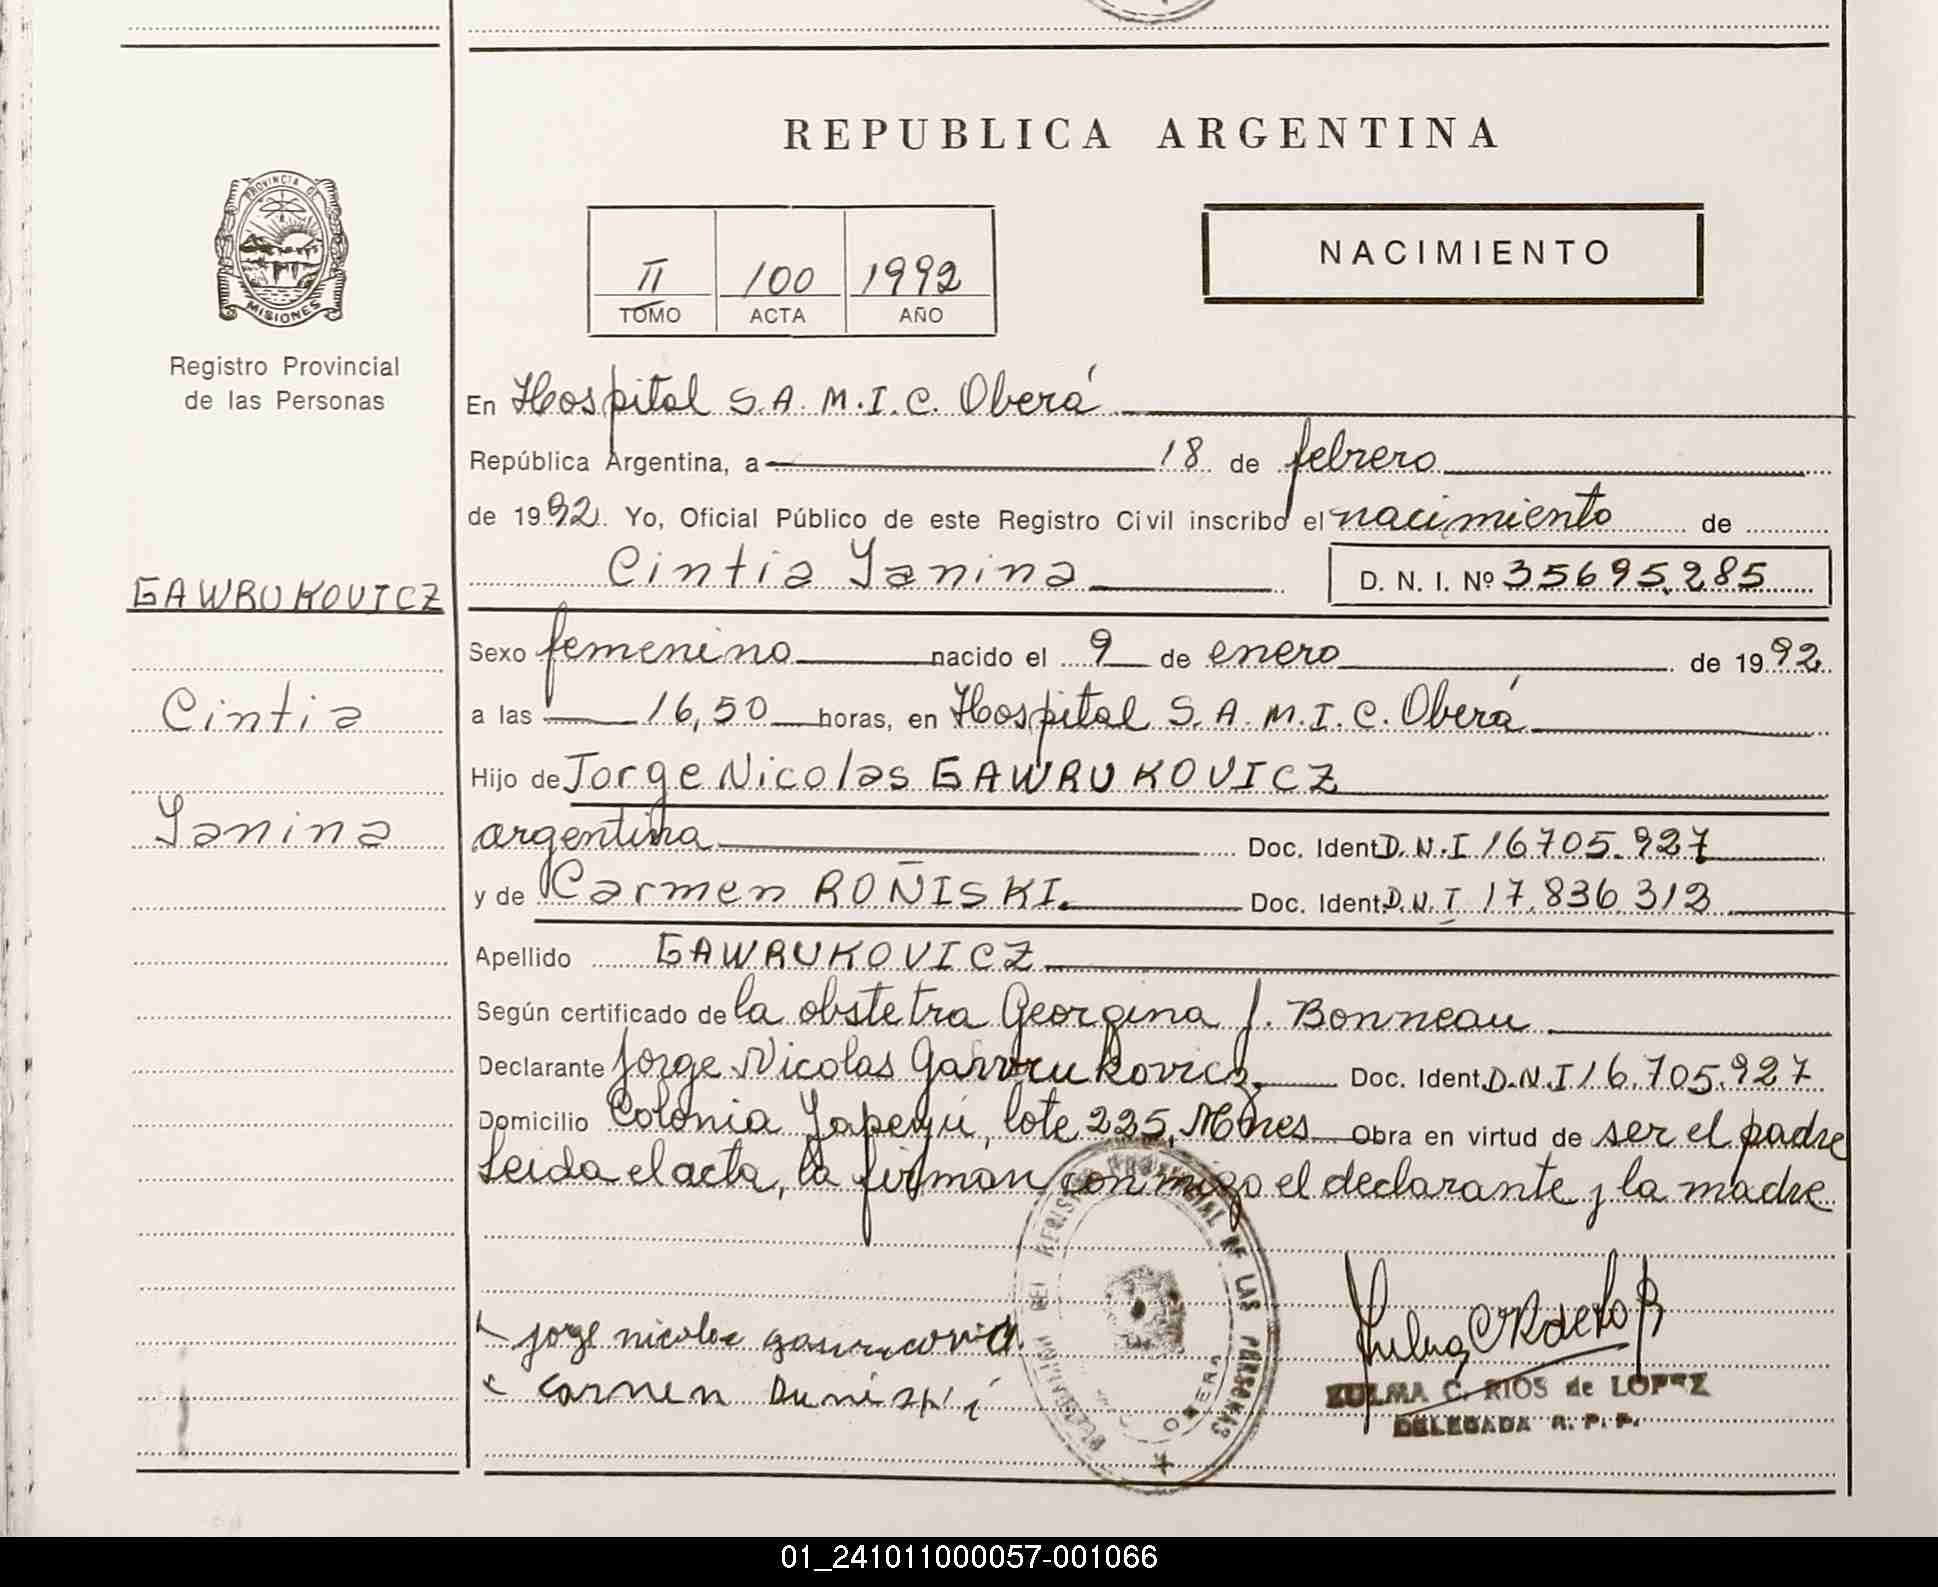 REPUBLICA ARGENTINA
PROVINCIA DE
MISIONES
Registro Provincial
de las Personas
II 100 1992
TOMO ACTA AÑO
NACIMIENTO
En Hospital S.A.M.I.C. Oberá
República Argentina, a 18 de febrero
de 1992. Yo, Oficial Público de este Registro Civil inscribo el nacimiento de
Cintia Yanina D. N. I. Nº 35695.285
GAWRUKOVICZ
Cintia
Yanina
Sexo femenino nacido el 9 de enero de 1992
a las 16,50 horas, en Hospital S.A.M.I.C. Oberá
Hijo de Jorge Nicolas GAWRUKOVICZ
argentina Doc. Ident. D.N.I 16705.927
y de Carmen ROÑISKI. Doc. Ident. D.N.I 17.836.312
Apellido GAWRUKOVICZ
Según certificado de la obstetra Georgina J. Bonneau
Declarante Jorge Nicolas Gawrukovicz Doc. Ident. D.N.I 16.705.927
Domicilio Colonia Yapeyú, lote 225, Mnes Obra en virtud de ser el padre
Leida el acta, la firman conmigo el declarante y la madre
jorge nicolas
carmen
DELEGACION DEL REGISTRO PROVINCIAL DE LAS PERSONAS
OBERA
ZULMA C. RIOS de LOPEZ
DELEGADA R. P. P.
01_241011000057-001066